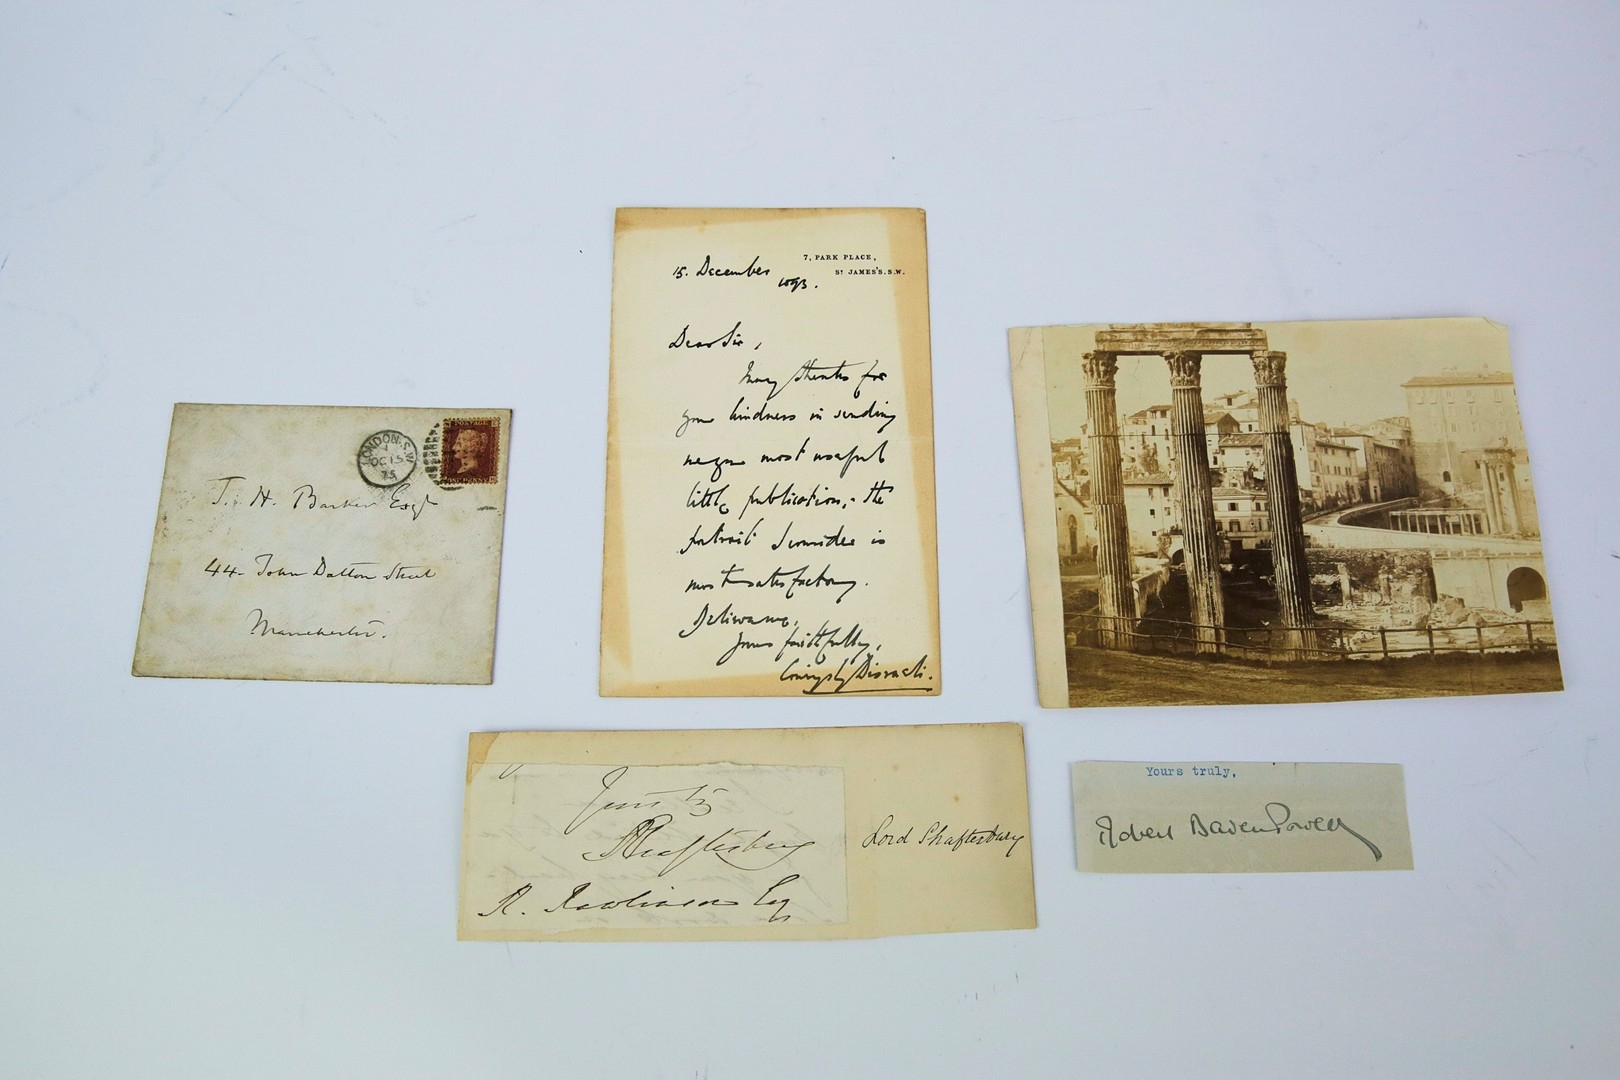 LONDON.S.W
OC15
75
POSTAGE
ONE PENNY
T. H. Barker Esqr
44. John Dalton Street
Manchester.
7, PARK PLACE,
St JAMES'S.S.W.
15. December
1893.
Dear Sir,
Many thanks for
your kindness in sending
me your most useful
little publication; the
portrait I consider is
most satisfactory.
Believe me,
Yours faithfully,
Coningsby Disraeli.
Yours
Shaftesbury
R. Rawlinson Esq
Lord Shaftesbury
Yours truly,
Robert Baden Powell